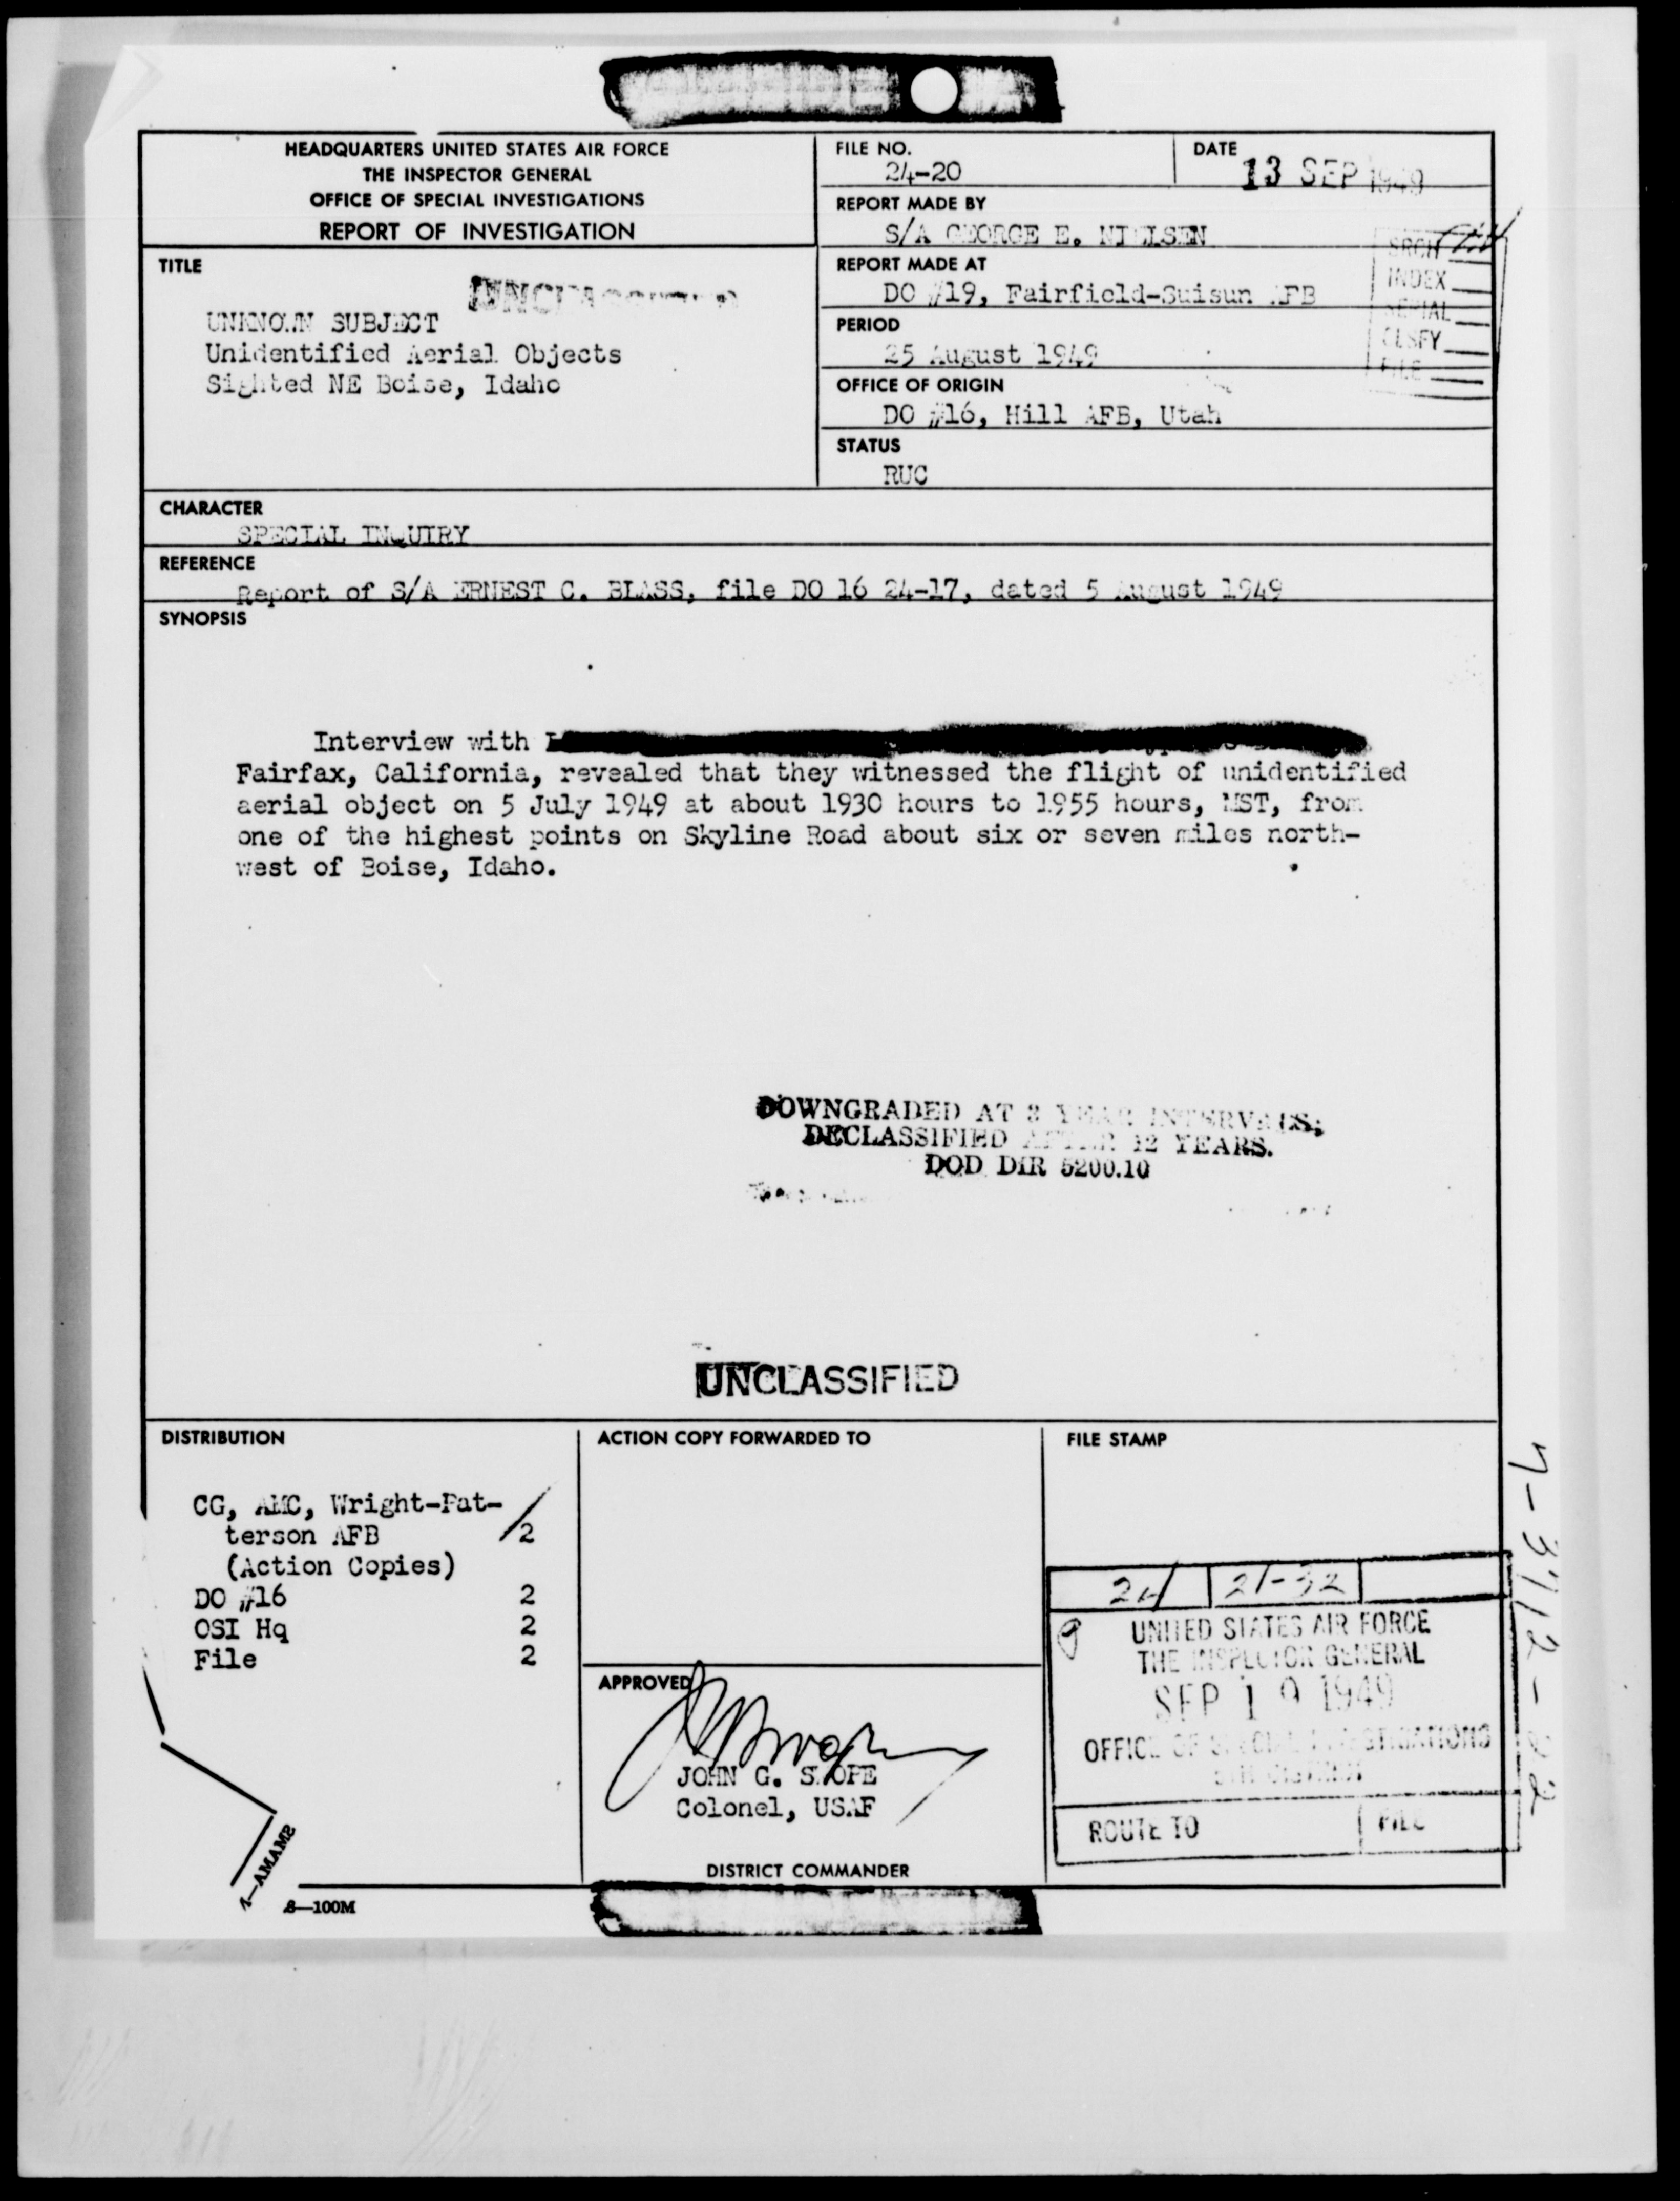 HEADQUARTERS UNITED STATES AIR FORCE
THE INSPECTOR GENERAL
OFFICE OF SPECIAL INVESTIGATIONS
REPORT OF INVESTIGATION
FILE NO.
24-20
DATE
13 SEP 1949
REPORT MADE BY
S/A GEORGE E. NIELSEN
TITLE
UNCLASSIFIED
UNKNOWN SUBJECT
Unidentified Aerial Objects
Sighted NE Boise, Idaho
REPORT MADE AT
DO #19, Fairfield-Suisun AFB
PERIOD
25 August 1949
OFFICE OF ORIGIN
DO #16, Hill AFB, Utah
STATUS
RUC
SRCH
INDEX
SERIAL
CLSFY
FILE
CHARACTER
SPECIAL INQUIRY
REFERENCE
Report of S/A ERNEST C. BLASS, file DO 16 24-17, dated 5 August 1949
SYNOPSIS
Interview with
Fairfax, California, revealed that they witnessed the flight of unidentified
aerial object on 5 July 1949 at about 1930 hours to 1955 hours, MST, from
one of the highest points on Skyline Road about six or seven miles north-
west of Boise, Idaho.
DOWNGRADED AT 3 YEAR INTERVALS;
DECLASSIFIED AFTER 12 YEARS.
DOD DIR 5200.10
UNCLASSIFIED
DISTRIBUTION
CG, AMC, Wright-Pat-
terson AFB 2
(Action Copies)
DO #16 2
OSI Hq 2
File 2
ACTION COPY FORWARDED TO
APPROVED
JOHN G. SHOPE
Colonel, USAF
DISTRICT COMMANDER
FILE STAMP
24 21-32
UNITED STATES AIR FORCE
THE INSPECTOR GENERAL
SEP 19 1949
OFFICE OF SPECIAL INVESTIGATIONS
ROUTE TO
FILE
7-3712-22
1—AMAMB
8—100M